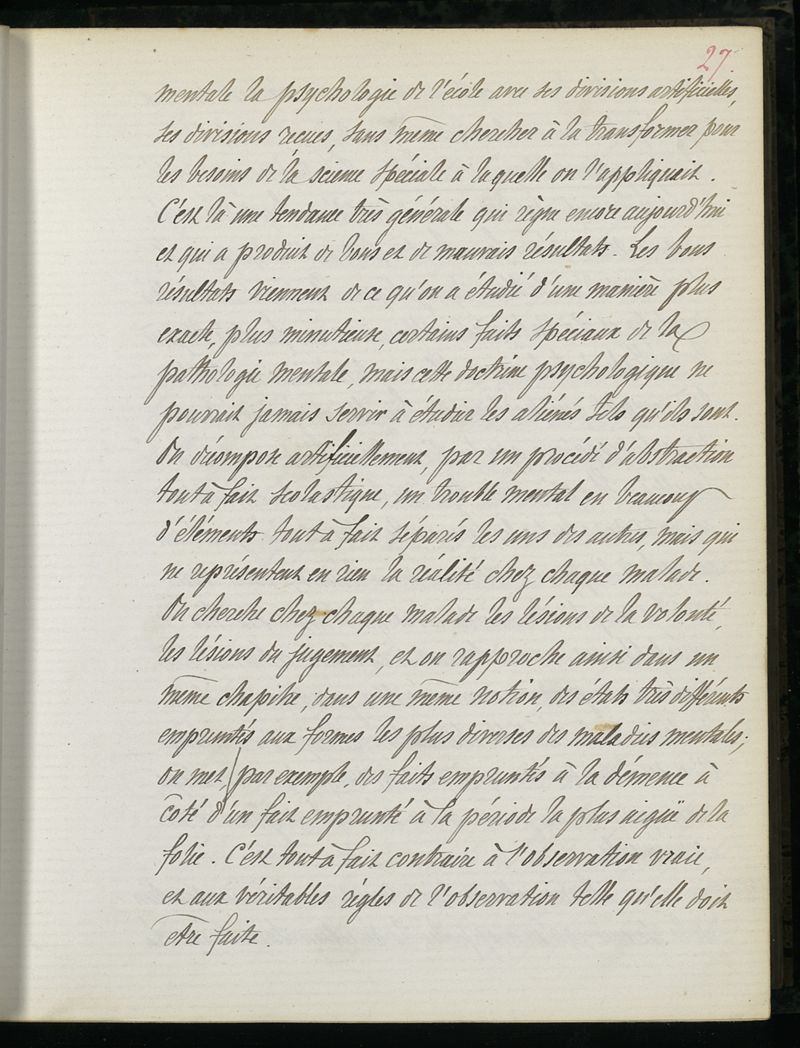 27
mentale la psychologie de l'école avec ses divisions artificielles,
ses divisions reçues, sans même chercher à la transformer pour
les besoins de la science spéciale à laquelle on l'appliquait.
C'est là une tendance très générale qui règne encore aujourd'hui
et qui a produit de bons et de mauvais résultats. Les bons
résultats viennent de ce qu'on a étudié d'une manière plus
exacte, plus minutieuse, certains faits spéciaux de la
pathologie mentale, mais cette doctrine psychologique ne
pouvait jamais servir à étudier les aliénés tels qu'ils sont.
On décompose artificiellement, par un procédé d'abstraction
tout à fait scolastique, un trouble mental en beaucoup
d'éléments tout à fait séparés les uns des autres, mais qui
ne représentent en rien la réalité chez chaque malade.
On cherche chez chaque malade les lésions de la volonté,
les lésions du jugement, et on rapproche ainsi dans un
même chapitre, dans une même notion, des états très différents
empruntés aux formes les plus diverses des maladies mentales;
on met, par exemple, des faits empruntés à la démence à
côté d'un fait emprunté à la période la plus aigüe de la
folie. C'est tout à fait contraire à l'observation vraie,
et aux véritables règles de l'observation telle qu'elle doit
être faite.